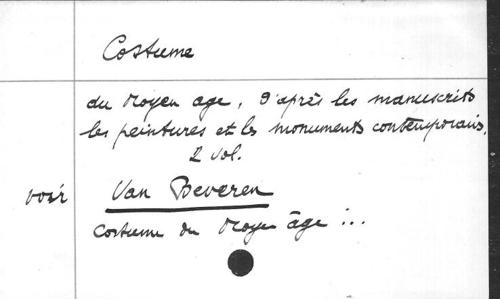 Costume
du Moyen age, d'après les manuscrits
les peintures et les monuments contemporains.
2 vol.
voir Van Beveren
Costume du Moyen âge ...